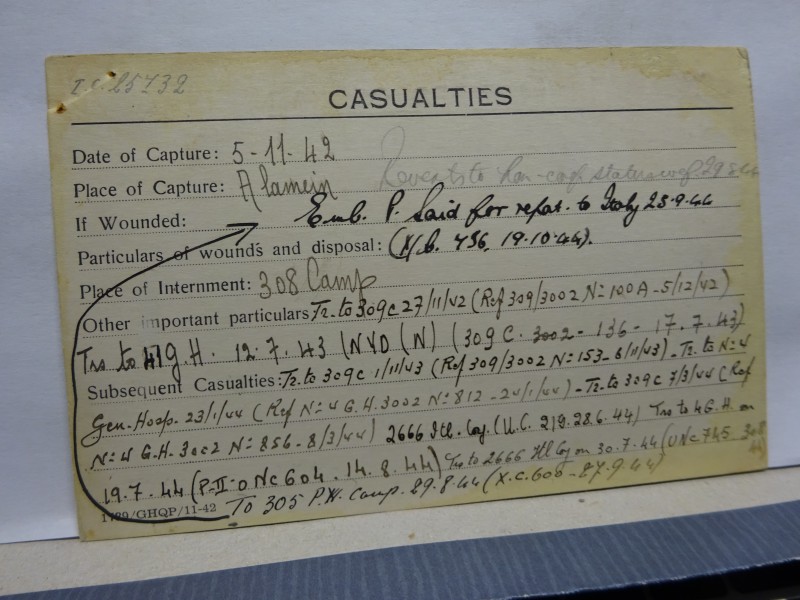 I.C. 25732
CASUALTIES
Date of Capture: 5-11-42
Place of Capture: Alamein Reverts to Non-coop status wef 29 8 44
If Wounded: Emb. P. Said for repat. to Italy 23.9.44
Particulars of wounds and disposal: (X/C. 736, 19.10.44).
Place of Internment: 308 Camp
Other important particulars Tr. to 309c 27/11/42 (Ref 309/3002 N= 100A - 5/12/42)
Tns to 41 G.H. 12.7.43 (NYD (N) (309 C. 3002 - 136 - 17.7.43)
Subsequent Casualties: Tr. to 309c 1/11/43 (Ref 309/3002 N= 153 - 8/11/43) - Tr. to N= 4
Gen. Hosp. 23/1/44 (Ref N= 4 G.H. 3002 N= 812 - 24/1/44) - Tr. to 309c 7/3/44 (Ref
N= 4 G.H. 3002 N= 856 - 8/3/44) 2666 Coy. (U.C. 219. 28.6.44) Tns to 4 G.H. on
19.7.44 (P-II-O Nc 604. 14.8.44) Tns to 2666 Coy on 30.7.44 (UNc 745 308
44)
1789/GHQP/11-42 To 305 P.W. Camp. 29.8.44 (X.C. 605 - 27.9.44)